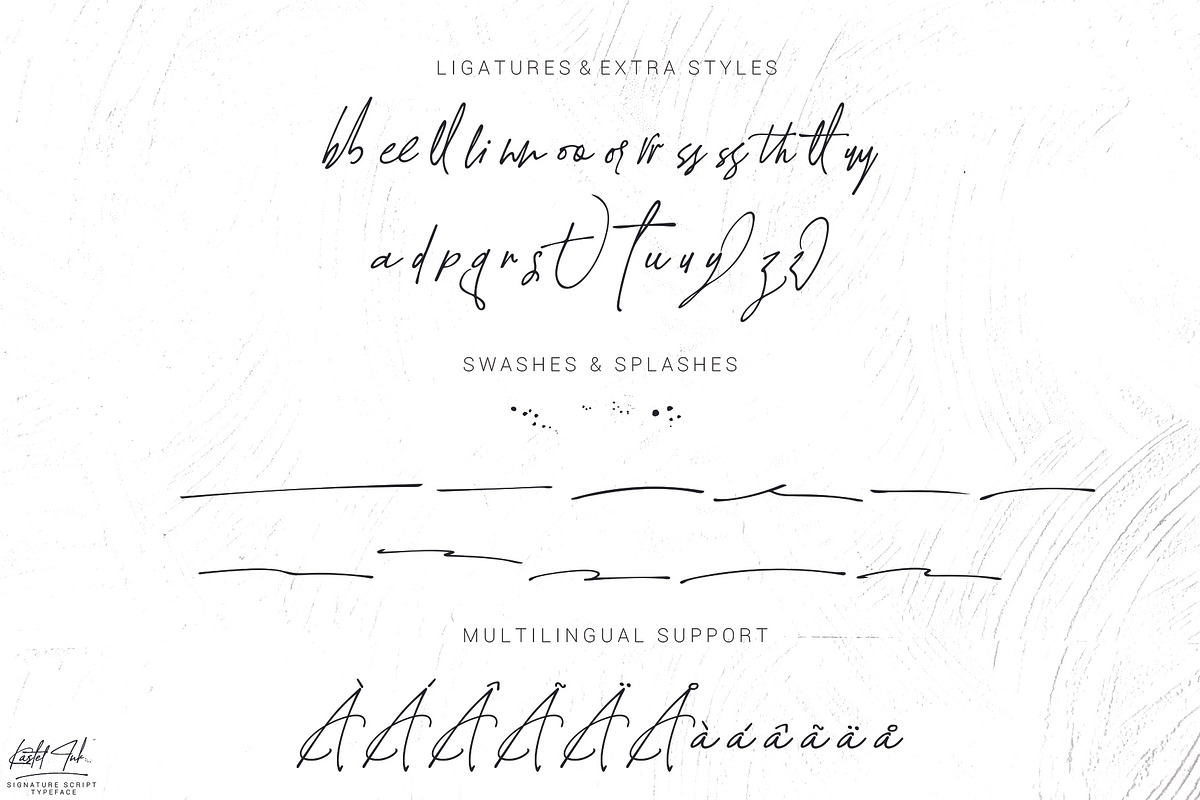 LIGATURES & EXTRA STYLES
bb ee ll li nn oo or rr ss ss th tt yy
a d p q r s t t u u y z z
SWASHES & SPLASHES
MULTILINGUAL SUPPORT
À Á Â Ã Ä Å à á â ã ä å
Kastel Ink
SIGNATURE SCRIPT
TYPEFACE